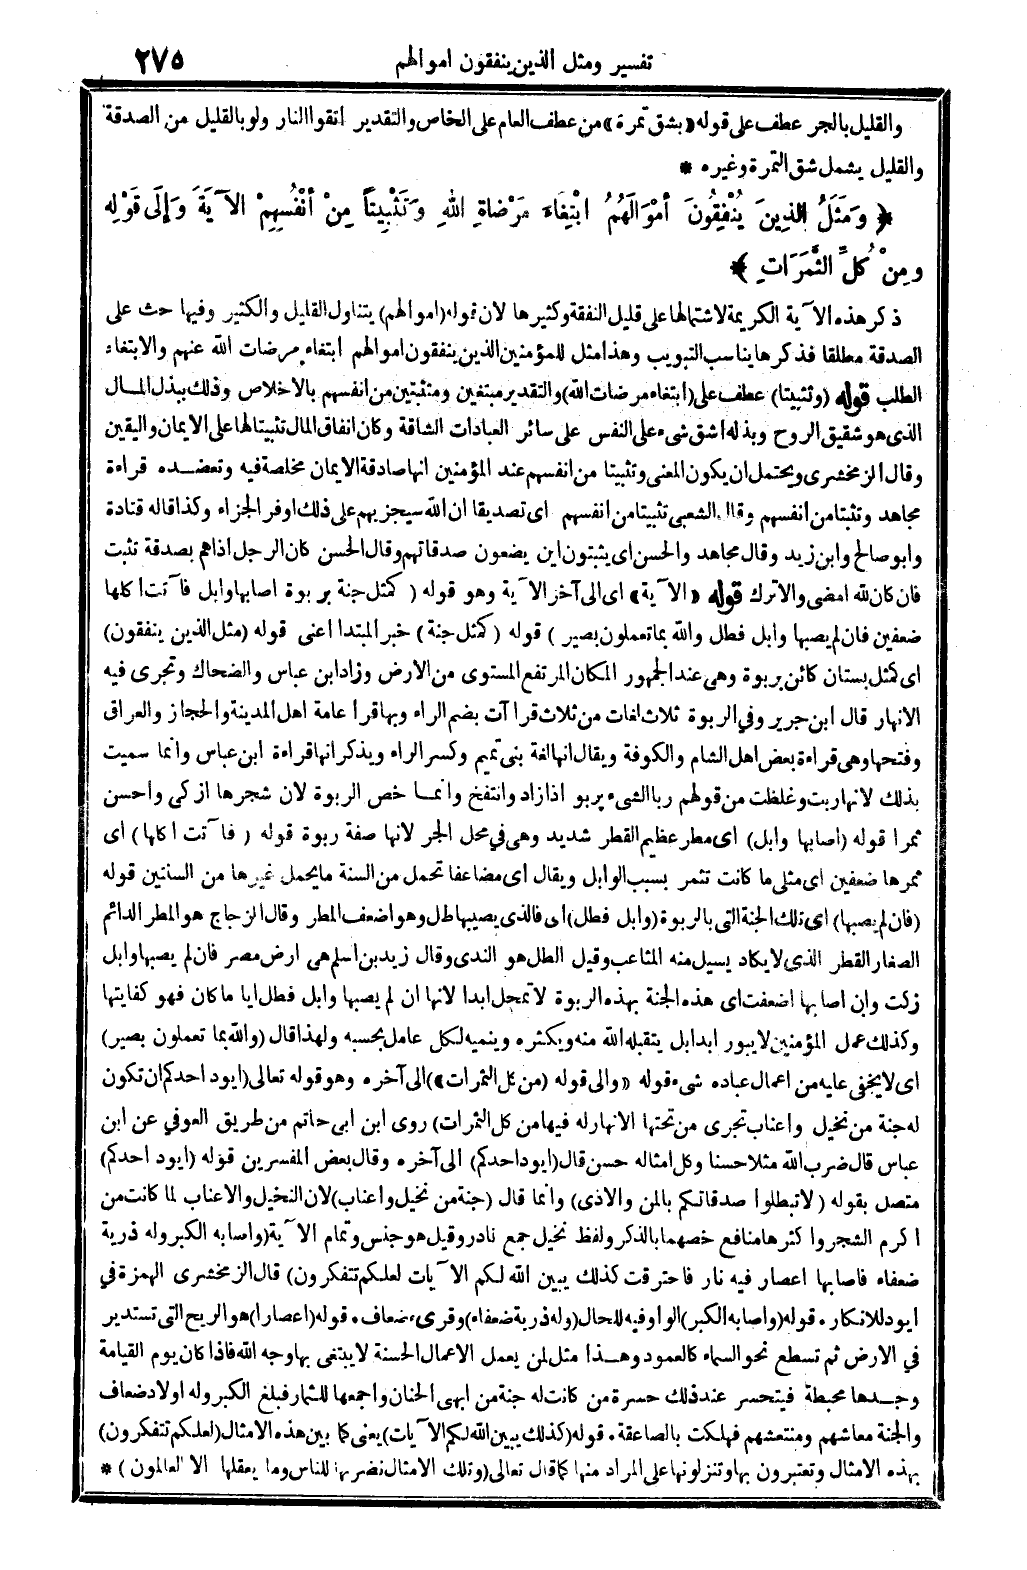 تفسير ومثل الذين ينفقون اموالهم ٢٧٥
والقليل بالجر عطف على قوله «بشق تمرة» من عطف العام على الخاص والتقدير اتقوا النار ولو بالقليل من الصدقة
والقليل يشمل شق التمرة وغيره *
﴿ وَمَثَلُ الذِينَ يُنْفِقُونَ أمْوَالَهُمُ ابْتِغَاءَ مَرْضَاةِ اللهِ وَتَثْبِيتاً مِنْ أنْفُسِهِمْ الآيَةَ وَإلَى قَوْلِهِ
ومِنْ كُلِّ الثَّمَرَاتِ ﴾*
ذكر هذه الآية الكريمة لاشتمالها على قليل النفقة وكثيرها لان قوله (اموالهم) يتناول القليل والكثير وفيها حث على
الصدقة مطلقا فذكرها يناسب التبويب وهذا مثل للمؤمنين الذين ينفقون اموالهم ابتغاء مرضات الله عنهم والابتغاء
الطلب قوله (وتثبيتا) عطف على (ابتغاء مرضات الله) والتقدير مبتغين ومتثبتين من انفسهم بالاخلاص وذلك ببذل المال
الذى هو شقيق الروح وبذله اشق شىء على النفس على سائر العبادات الشاقة وكان انفاق المال تثبيتا لها على الايمان واليقين
وقال الزمخشرى ويحتمل ان يكون المعنى وتثبيتا من انفسهم عند المؤمنين انها صادقة الايمان مخلصة فيه وتعضده قراءة
مجاهد وتثبتا من أنفسهم وقال الشعبى تثبيتا من انفسهم اى تصديقا ان الله سيجزيهم على ذلك اوفر الجزاء وكذا قاله قتادة
وابو صالح وابن زيد وقال مجاهد والحسن اى يثبتون اين يضعون صدقاتهم وقال الحسن كان الرجل اذا هم بصدقة تثبت
فان كان لله امضى والا ترك قوله «الآية» اى الى آخر الآية وهو قوله ( كمثل جنة بربوة اصابها وابل فآتت اكلها
ضعفين فان لم يصبها وابل فطل والله بما تعملون بصير ) قوله ( كمثل جنة ) خبر المبتدا اعنى قوله (مثل الذين ينفقون)
اى كمثل بستان كائن بربوة وهى عند الجمهور المكان المرتفع المستوى من الارض وزاد ابن عباس والضحاك وتجرى فيه
الانهار قال ابن جرير وفي الربوة ثلاث لغات من ثلاث قراآت بضم الراء وبها قرأ عامة اهل المدينة والحجاز والعراق
وفتحها وهى قراءة بعض اهل الشام والكوفة ويقال انها لغة بنى تميم وكسر الراء ويذكر انها قراءة ابن عباس وانما سميت
بذلك لانها ربت وغلظت من قولهم ربا الشىء يربو اذا زاد وانتفخ وانما خص الربوة لان شجرها ازكى واحسن
ثمرا قوله (اصابها وابل) اى مطر عظيم القطر شديد وهى في محل الجر لانها صفة ربوة قوله ( فآتت اكلها ) اى
ثمرها ضعفين اى مثلى ما كانت تثمر بسبب الوابل ويقال اى مضاعفا تحمل من السنة ما يحمل غيرها من السنتين قوله
(فان لم يصبها) اى تلك الجنة التى بالربوة (وابل فطل) اى فالذى يصيبها طل وهو اضعف المطر وقال الزجاج هو المطر الدائم
الصغار القطر الذى لا يكاد يسيل منه المثاعب وقيل الطل هو الندى وقال زيد بن اسلم هى ارض مصر فان لم يصبها وابل
زكت وإن اصابها اضعفت اى هذه الجنة بهذه الربوة لا تمحل ابدا لانها ان لم يصبها وابل فطل ايا ما كان فهو كفايتها
وكذلك عمل المؤمنين لا يبور ابدا بل يتقبله الله منه ويكثره وينميه لكل عامل بحسبه ولهذا قال (والله بما تعملون بصير)
اى لا يخفى عليه من اعمال عباده شىء قوله «والى قوله (من كل الثمرات)» الى آخره وهو قوله تعالى (ايود احدكم ان تكون
له جنة من نخيل واعناب تجرى من تحتها الانهار له فيها من كل الثمرات) روى ابن ابى حاتم من طريق العوفي عن ابن
عباس قال ضرب الله مثلا حسنا وكل امثاله حسن قال (ايود احدكم) الى آخره وقال بعض المفسرين قوله (ايود احدكم)
متصل بقوله (لا تبطلوا صدقاتكم بالمن والاذى) وانما قال (جنة من نخيل واعناب) لان النخيل والاعناب لما كانت من
اكرم الشجر واكثرها منافع خصهما بالذكر ولفظ نخيل جمع نادر وقيل هو جنس وتمام الآية (واصابه الكبر وله ذرية
ضعفاء فاصابها اعصار فيه نار فاحترقت كذلك يبين الله لكم الآيات لعلكم تتفكرون) قال الزمخشرى الهمزة في
ايود للانكار . قوله (واصابه الكبر) الواو فيه للحال (وله ذرية ضعفاء) وقرىء ضعاف . قوله (اعصار) هو الريح التى تستدير
في الارض ثم تسطع نحو السماء كالعمود وهذا مثل لمن يعمل الاعمال الحسنة لا يبتغى بها وجه الله فاذا كان يوم القيامة
وجدها محبطة فيتحسر عند ذلك حسرة من كانت له جنة من ابهى الجنان واجمعها للثمار فبلغ الكبر وله اولاد ضعاف
والجنة معاشهم ومنتعشهم فهلكت بالصاعقة . قوله (كذلك يبين الله لكم الآيات) يعنى كما بين هذه الامثال (لعلكم تتفكرون)
بهذه الامثال وتعتبرون بها وتنزلونها على المراد منها كما قال تعالى (وتلك الامثال نضربها للناس وما يعقلها الا العالمون ) *